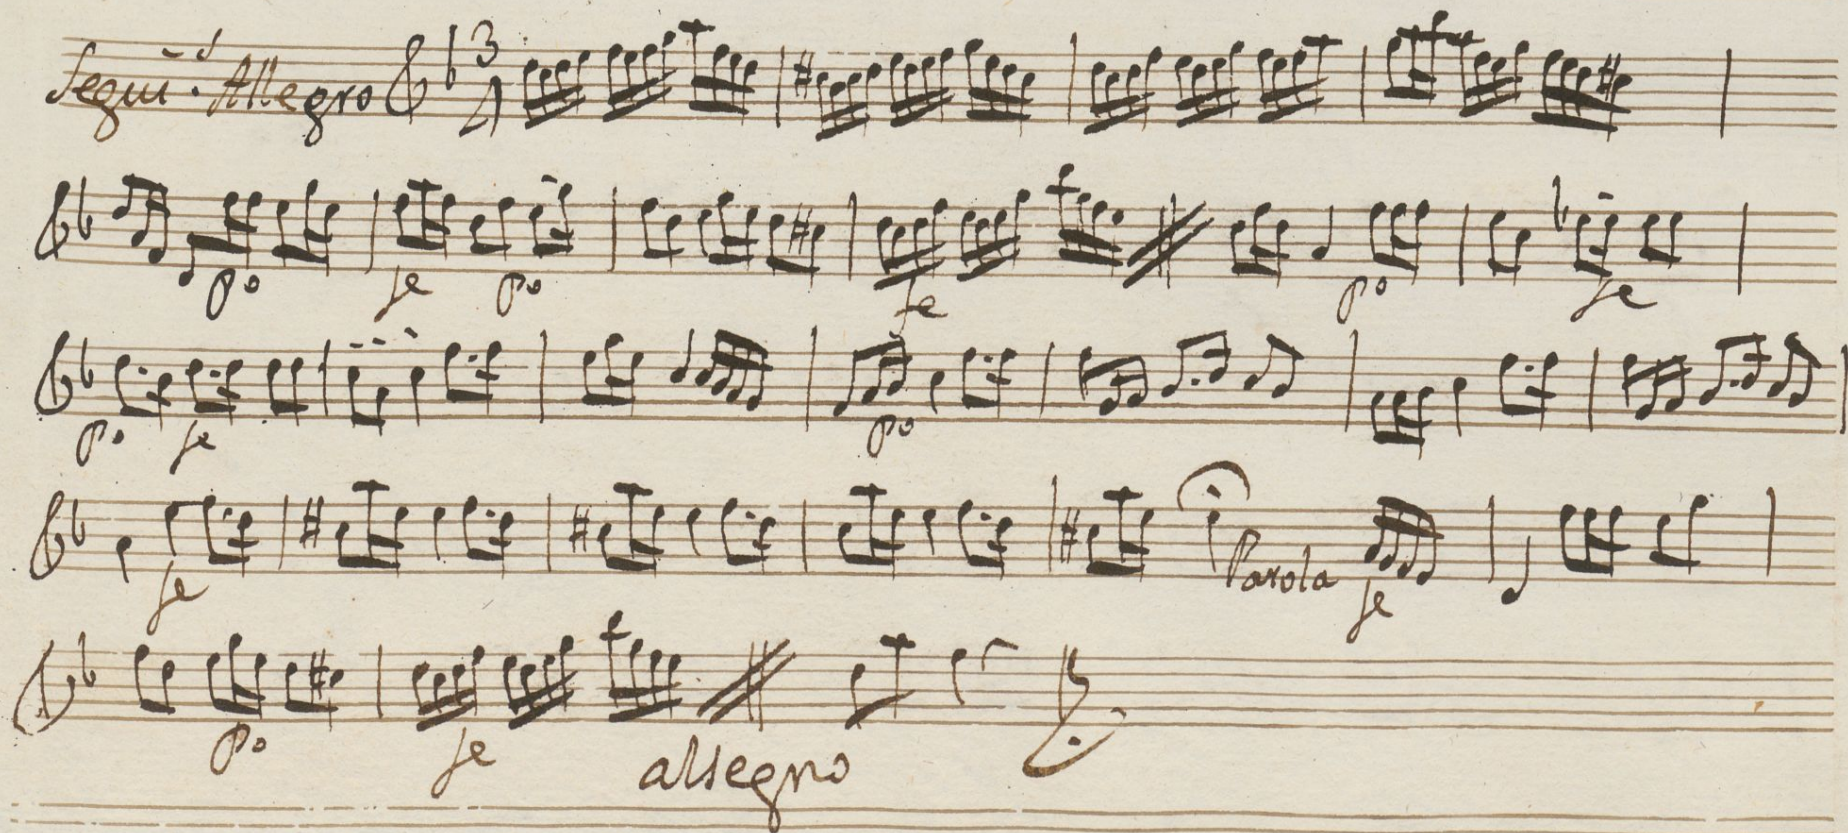 Seguī.s Allegro 3 4
po fe po fe po fe
po fe po
fe Parola fe
po fe allegno